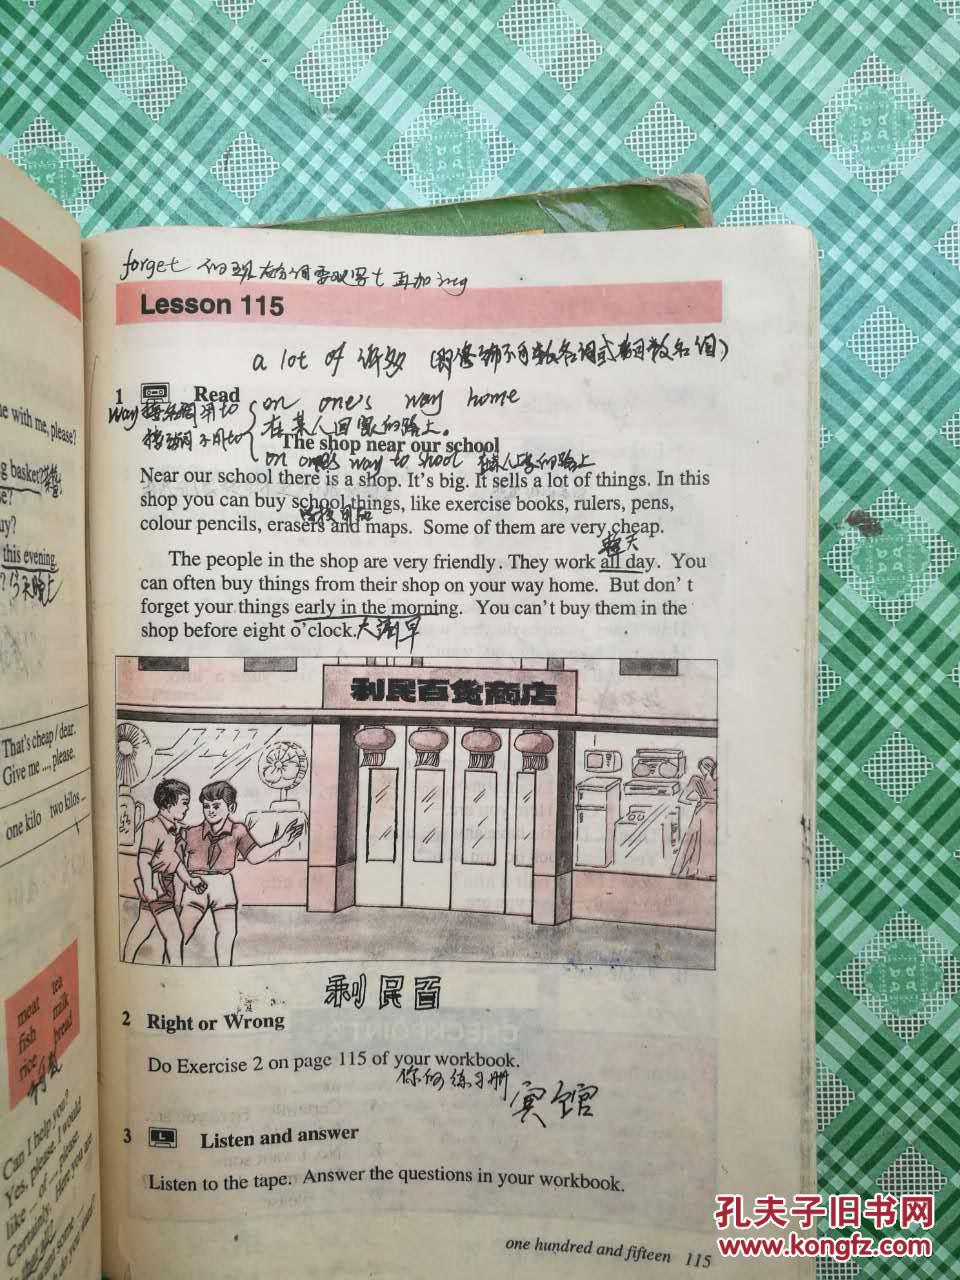 forget 的现在分词要双写t再加ing
Lesson 115
a lot of 许多 (既修饰不可数名词或可数名词)
1 Read
way 接名词用to
on one's way home
在某人回家的路上。
接副词不用to
The shop near our school
on one's way to shool 某人上学的路上
Near our school there is a shop. It's big. It sells a lot of things. In this
shop you can buy school things, like exercise books, rulers, pens,
学校用品
colour pencils, erasers and maps. Some of them are very cheap.
整天
The people in the shop are very friendly. They work all day. You
can often buy things from their shop on your way home. But don't
forget your things early in the morning. You can't buy them in the
shop before eight o'clock. 大清早
利民百货商店
利民百
2 Right or Wrong
Do Exercise 2 on page 115 of your workbook.
你的练习册
宾馆
3 Listen and answer
Listen to the tape. Answer the questions in your workbook.
one hundred and fifteen 115
me with me, please?
basket?
uy?
this evening.
今天晚上
That's cheap / dear.
Give me ..., please.
one kilo two kilos
meat tea
fish milk
rice bread
Can I help you?
Yes, please. I would
like ... of ..., please.
Certainly. Here you are
孔夫子旧书网
www.kongfz.com